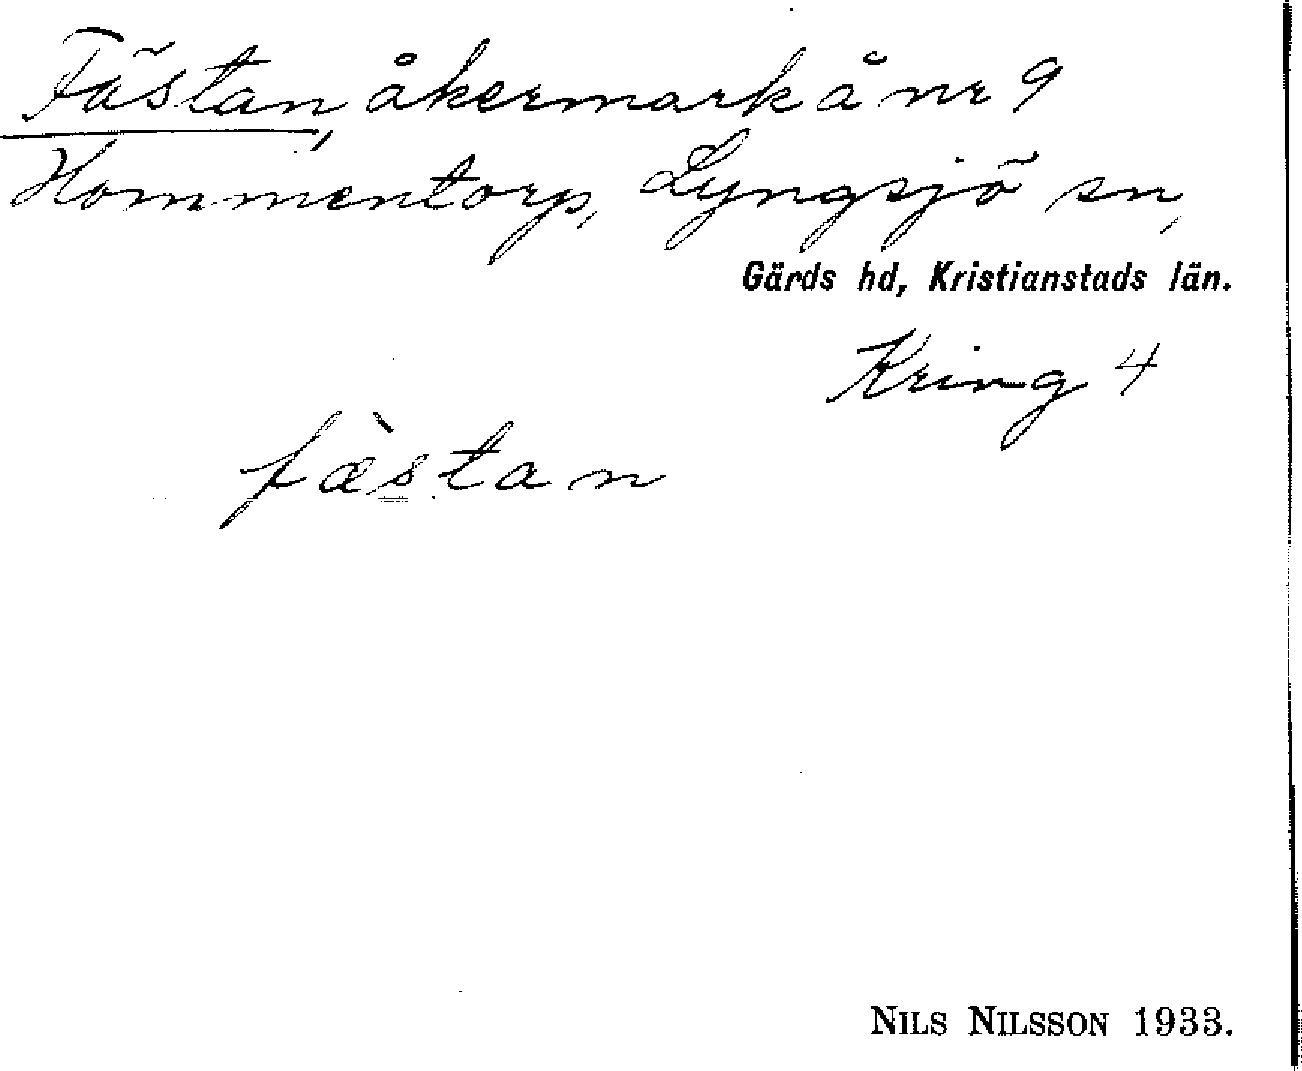 Fästan, åkermark å nr 9
Hommentorp, Lyngsjö sn,
Gärds hd, Kristianstads län.
Kring 4
fæ̀stan
NILS NILSSON 1933.